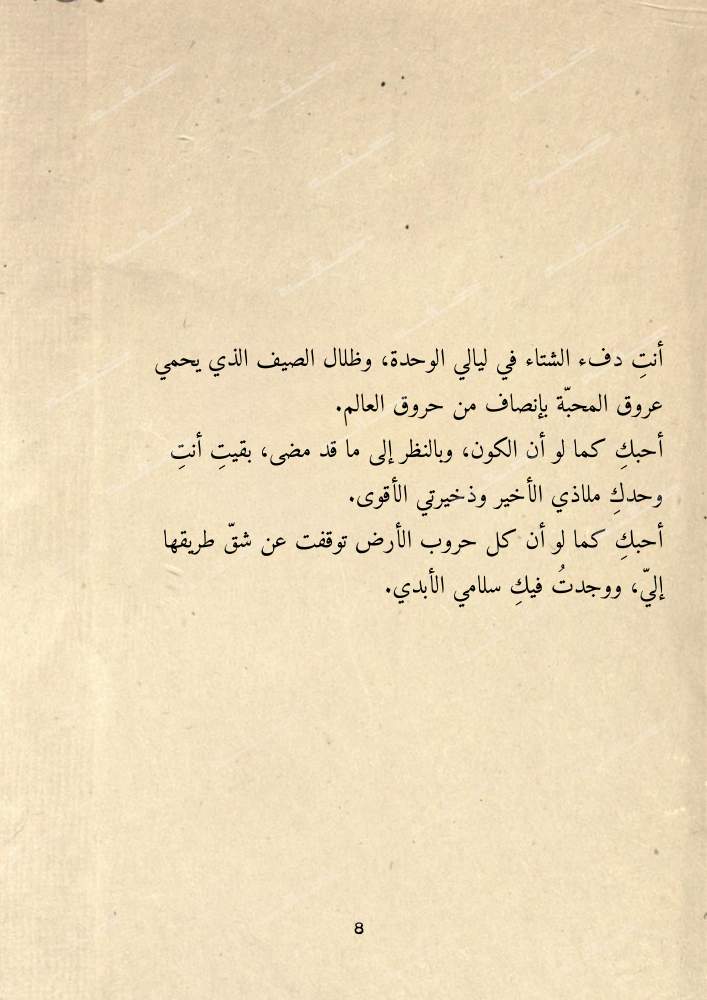 أنتِ دفء الشتاء في ليالي الوحدة، وظلال الصيف الذي يحمي
عروق المحبّة بإنصاف من حروق العالم.
أحبكِ كما لو أن الكون، وبالنظر إلى ما قد مضى، بقيتِ أنتِ
وحدكِ ملاذي الأخير وذخيرتي الأقوى.
أحبكِ كما لو أن كل حروب الأرض توقفت عن شقّ طريقها
إليّ، ووجدتُ فيكِ سلامي الأبدي.
8